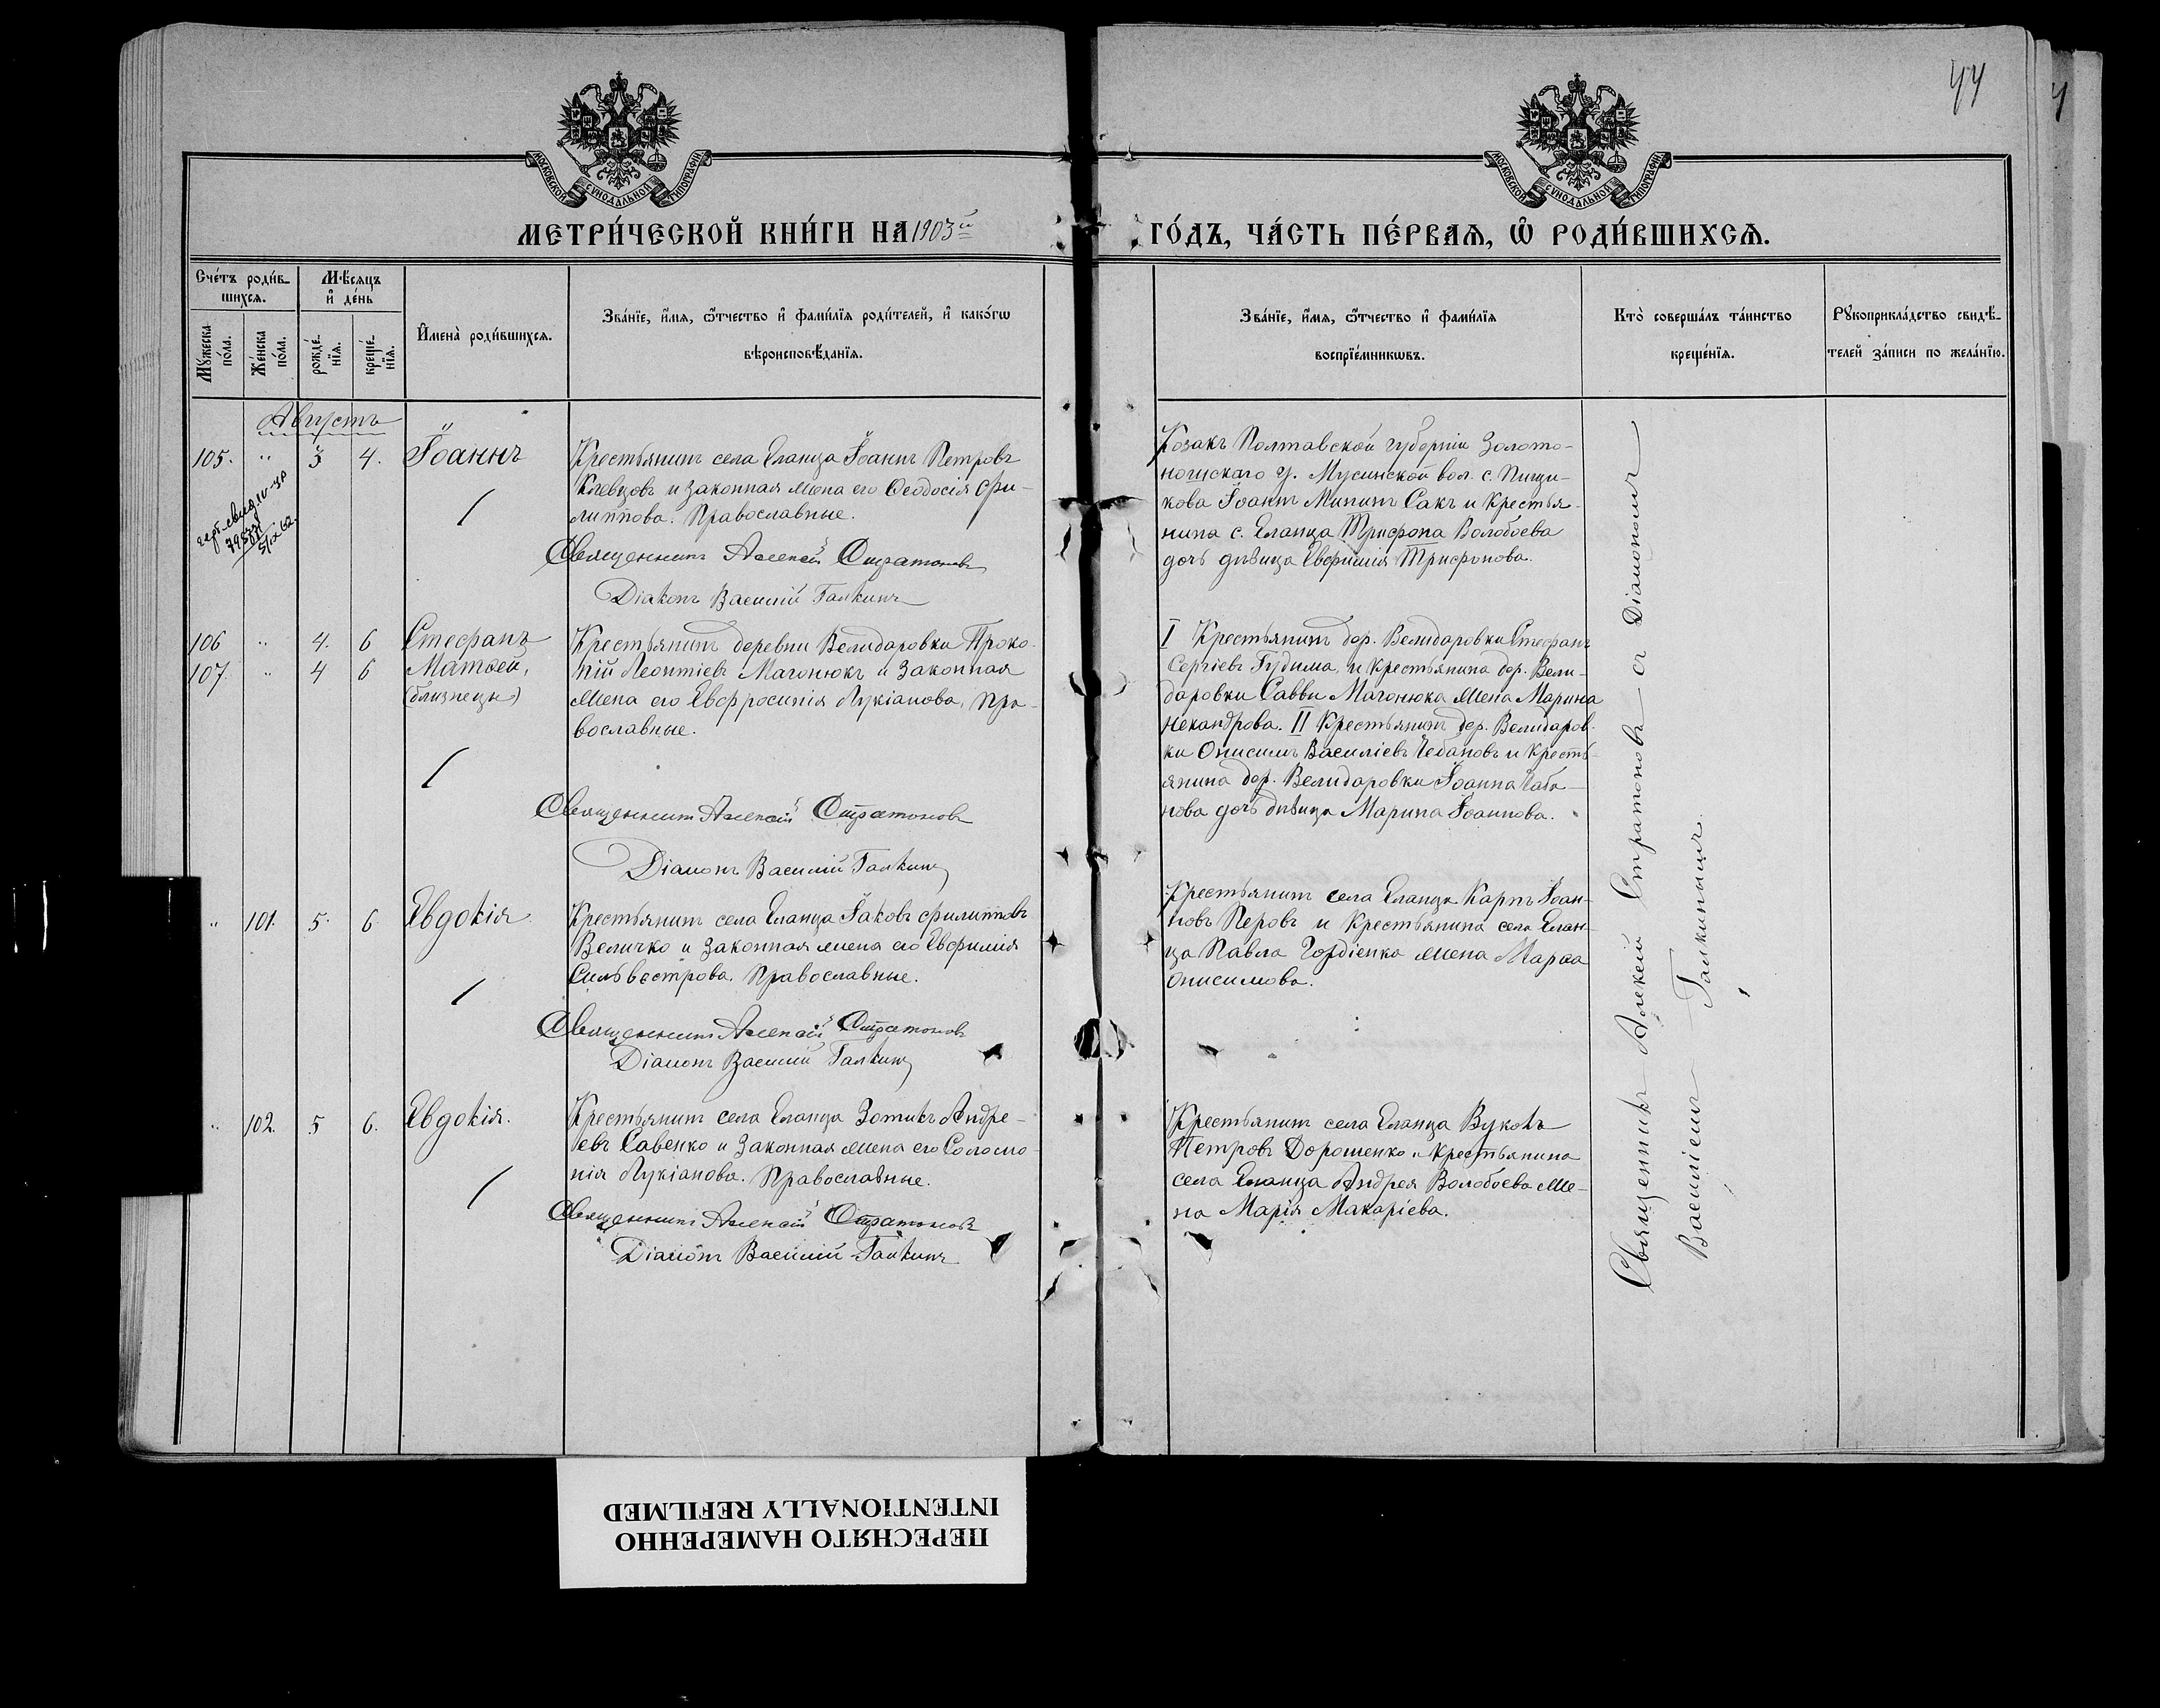 44
МОСКОВСКОЙ СѴНОДАЛЬНОЙ ТИПОГРАФІИ.
МОСКОВСКОЙ СѴНОДАЛЬНОЙ ТИПОГРАФІИ.
МЕТРИ́ЧЕСКОЙ КНИ́ГИ НА 1903й
ГО́ДЪ, ЧА́СТЬ ПЕ́РВАЯ, Ѡ РОДИ́ВШИХСЯ.
Сче́тъ роди́в-
шихся.
Му́жеска
по́ла.
Же́нска
по́ла.
Мѣ́сяцъ
и҆ де́нь
рожде́-
нїя.
креще́-
нїя.
И҆мена̀ роди́вшихся.
Зва́нїе, и҆́мя, ѻ҆́тчество и҆ фами́лїя роди́телей, и҆ како́гѡ
вѣроисповѣ́данїя.
Зва́нїе, и҆́мя, ѻ҆́тчество и҆ фами́лїя
воспрїе́мникѡвъ.
Кто̀ соверша́лъ та́инство
креще́нїя.
Рꙋкоприкла́дство свидѣ́-
телей за́писи по жела́нїю.
Августъ
105. " 3 4. Іоаннъ
Крестьянинъ села Еланца Іоаннъ Петровъ
Клевцовъ и законная жена его Ѳеодосія Фи-
липпова. Православные.
Священникъ Алексій Стратоновъ
Діаконъ Василій Галкинъ
Козакъ Полтавской губерніи Золото-
ношскаго у. Мусинской вол. с. Пищи-
кова Іоаннъ Мининъ Сакъ и крестья-
нина с. Еланца Трифона Волобоева
дочь дѣвица Евфимія Трифонова.
106 " 4. 6 Стефанъ
107. " 4 6 Матѳей,
(близнецы)
Крестьянинъ деревни Велидаровки Проко-
пій Леонтіевъ Магонюкъ и законная
жена его Евфросинія Лукіанова, пра-
вославные.
Священникъ Алексій Стратоновъ
Діаконъ Василій Галкинъ
I Крестьянинъ дер. Велидаровки Стефанъ
Сергіевъ Гудима, и крестьянина дер. Вели-
даровки Саввы Магонюка жена Марина
Некандрова. II Крестьянинъ дер. Велидаров-
ки Онисимъ Василіевъ Чебановъ и кресть-
янина дер. Велидаровки Іоанна Чаба-
нова дочь дѣвица Марина Іоаннова.
" 101. 5. 6. Евдокія
Крестьянинъ села Еланца Іаковъ Филиповъ
Величко и законная жена его Евфимія
Сильвестрова. Православные.
Священникъ Алексій Стратоновъ
Діаконъ Василій Галкинъ
Крестьянинъ села Еланца Карпъ Іоан-
новъ Перовъ и крестьянина села Елан-
ца Павла Гордіенка жена Марѳа
Онисимова.
" 102. 5 6. Евдокія.
Крестьянинъ села Еланца Зотикъ Андре-
евъ Савенко и законная жена его Соломо-
нія Лукіанова. Православные.
Священникъ Алексій Стратоновъ
Діаконъ Василій Галкинъ
Крестьянинъ села Еланца Вуколъ
Петровъ Дорошенко и крестьянина
села Еланца Андрея Волобоева же-
на Марія Макаріева.
Священникъ Алексій Стратоновъ съ Діакономъ
Василіемъ Галкинымъ.
ПЕРЕСНЯТО НАМЕРЕННО
INTENTIONALLY REFILMED